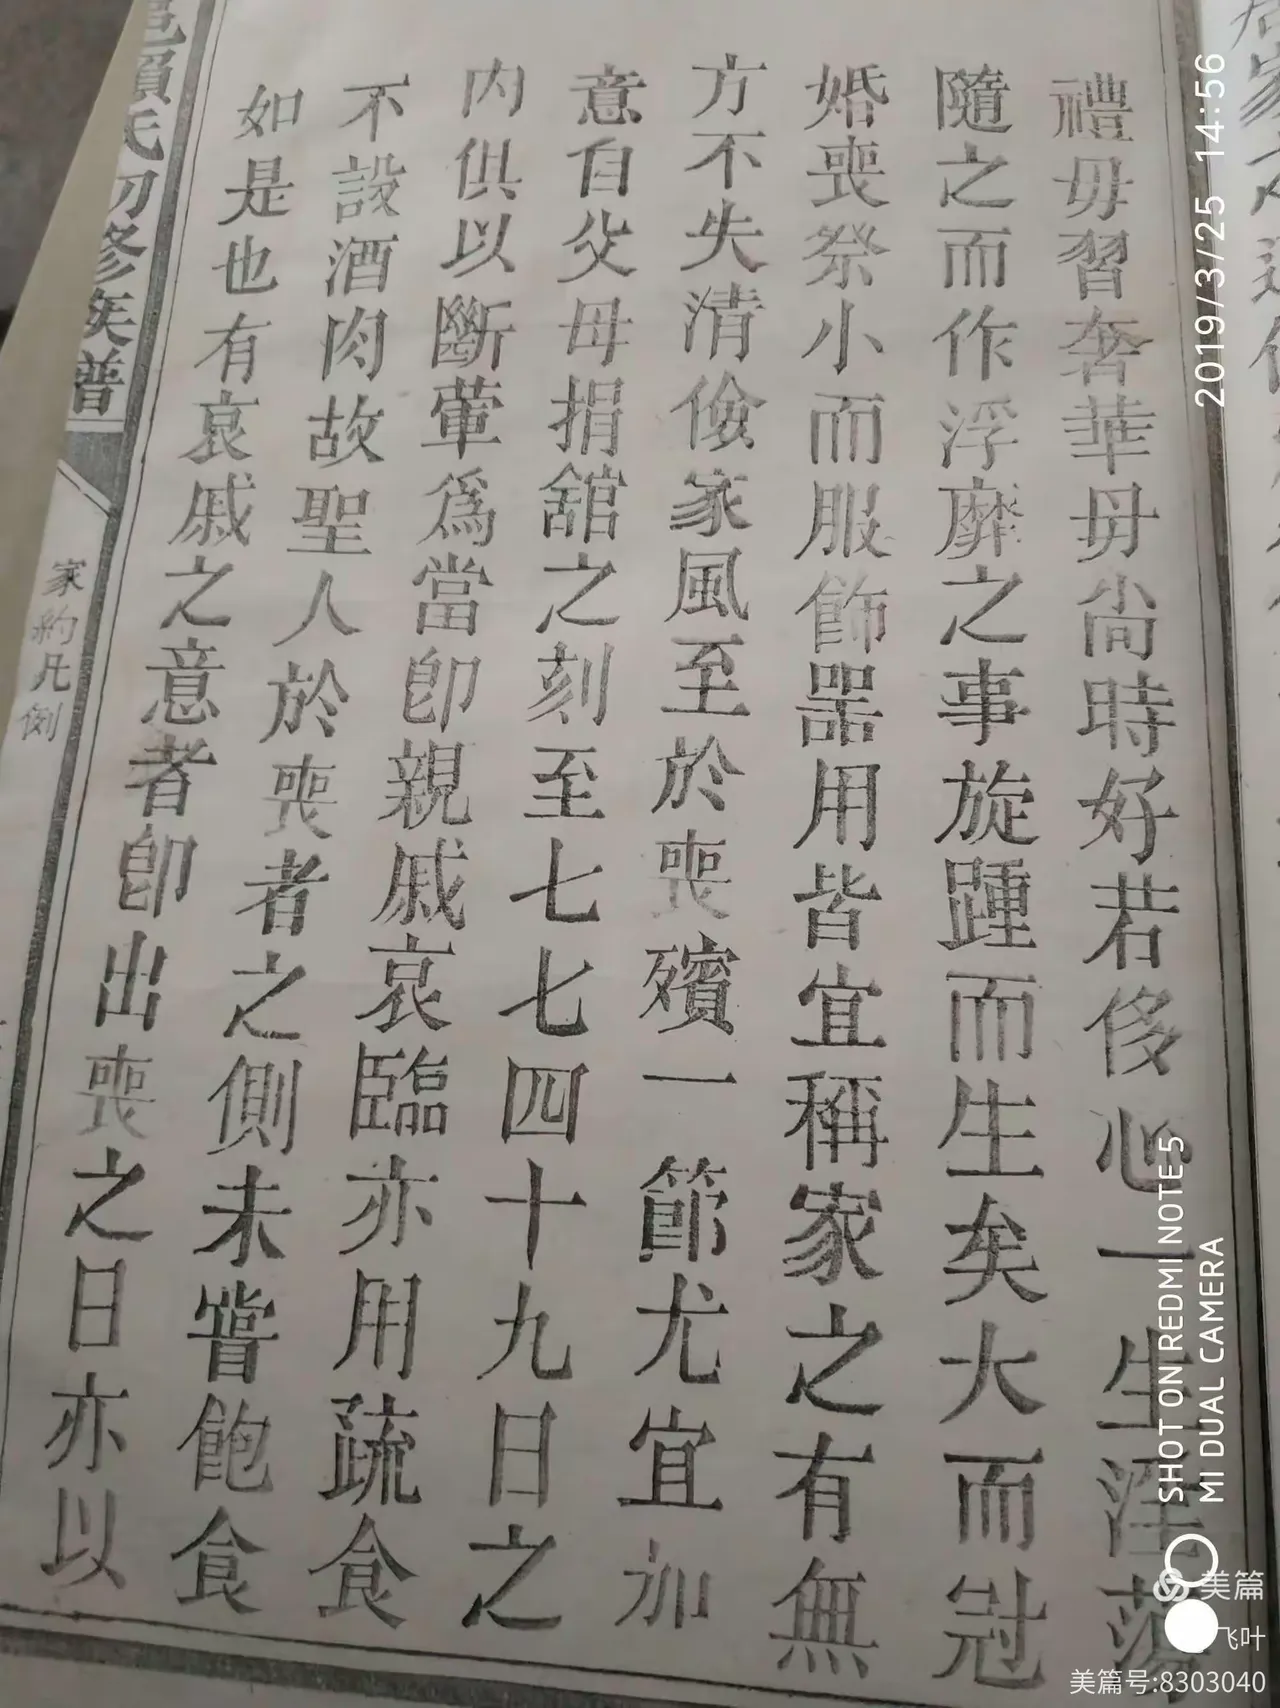 禮毋習奢華毋尚時好若侈心一生淫蕩
隨之而作浮靡之事旋踵而生矣大而冠
婚喪祭小而服飾器用皆宜稱家之有無
方不失清儉家風至於喪殯一節尤宜加
意自父母捐舘之刻至七七四十九日之
内俱以斷葷爲當卽親戚哀臨亦用蔬食
不設酒肉故聖人於喪者之側未甞飽食
如是也有哀戚之意者卽出喪之日亦以
賴氏初修族譜
家約凡例
2019/3/25 14:56
SHOT ON REDMI NOTE 5
MI DUAL CAMERA
美篇
飞叶
美篇号:8303040